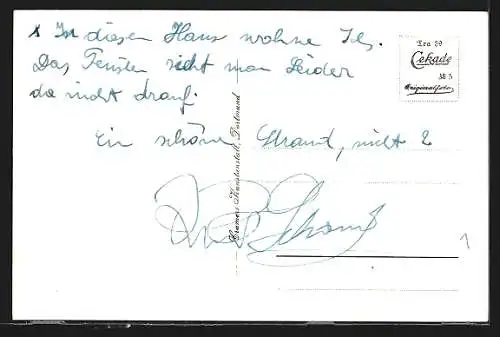 x In diesem Haus wohne Ich.
Das Fenster sieht man leider
da nicht drauf.
Ein schöner Strand, nicht?
Tra 50
Cekade
M 5
Originalfoto
Cramers Kunstanstalt, Dortmund
1